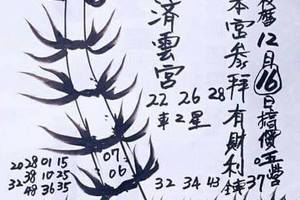 12月16日犒價五營
本宮參拜有財利錸37
濟雲宮
22 26 28
車2星
32 34 43
07
06
20 28 01 15
32 38 10 25
48 36 35